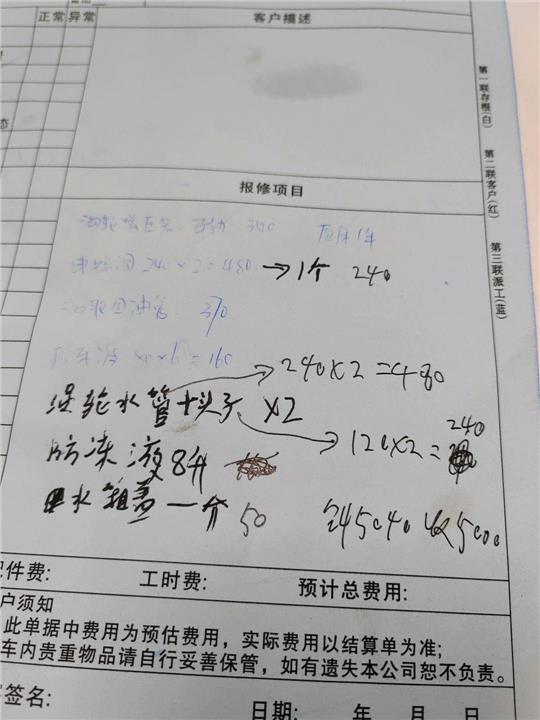 正常 异常 客户描述
第一联存根(白) 第二联客户(红) 第三联派工(蓝)
态
报修项目
质保1年
240×2=480 →1个 240
回油管 370
=160
240×2=480
涡轮水管+头子 ×2
120×2=240
防冻液8升
水箱盖一个 50
5040 收5000
配件费: 工时费: 预计总费用:
户须知
此单据中费用为预估费用，实际费用以结算单为准;
车内贵重物品请自行妥善保管，如有遗失本公司恕不负责。
签名:
日期: 年 月 日